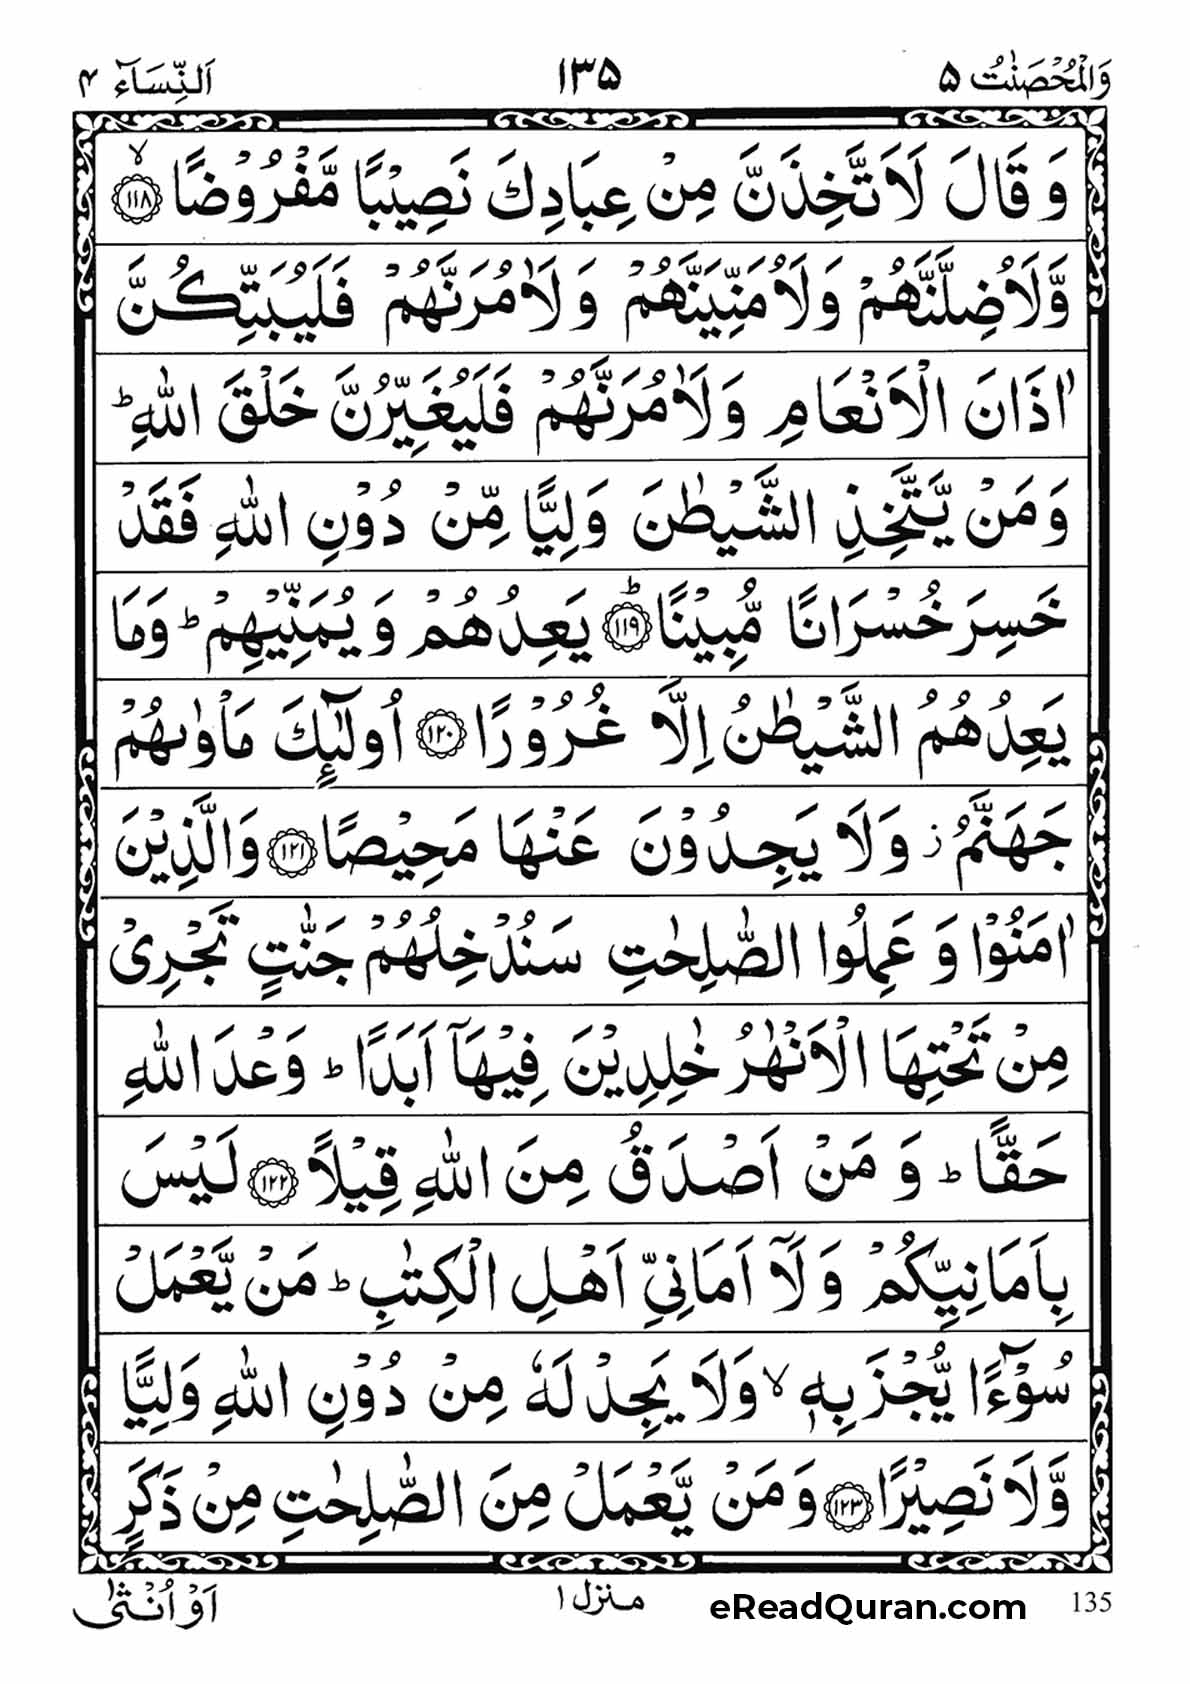 وَالْمُحْصَنٰتُ ۵
۱۳۵
اَلنِّسَآء ۴
وَ قَالَ لَاَتَّخِذَنَّ مِنْ عِبَادِكَ نَصِیْبًا مَّفْرُوْضًا ﴿۱۱۸﴾ۙ
وَّلَاُضِلَّنَّهُمْ وَلَاُمَنِّیَنَّهُمْ وَلَاٰمُرَنَّهُمْ فَلَیُبَتِّكُنَّ
اٰذَانَ الْاَنْعَامِ وَلَاٰمُرَنَّهُمْ فَلَیُغَیِّرُنَّ خَلْقَ اللّٰهِ ؕ
وَمَنْ یَّتَّخِذِ الشَّیْطٰنَ وَلِیًّا مِّنْ دُوْنِ اللّٰهِ فَقَدْ
خَسِرَ خُسْرَانًا مُّبِیْنًا ﴿۱۱۹﴾ؕ یَعِدُهُمْ وَ یُمَنِّیْهِمْ ؕ وَمَا
یَعِدُهُمُ الشَّیْطٰنُ اِلَّا غُرُوْرًا ﴿۱۲۰﴾ اُولٰٓئِكَ مَاْوٰىهُمْ
جَهَنَّمُ ز وَلَا یَجِدُوْنَ عَنْهَا مَحِیْصًا ﴿۱۲۱﴾ وَالَّذِیْنَ
اٰمَنُوْا وَ عَمِلُوا الصّٰلِحٰتِ سَنُدْخِلُهُمْ جَنّٰتٍ تَجْرِیْ
مِنْ تَحْتِهَا الْاَنْهٰرُ خٰلِدِیْنَ فِیْهَاۤ اَبَدًا ؕ وَعْدَ اللّٰهِ
حَقًّا ؕ وَ مَنْ اَصْدَقُ مِنَ اللّٰهِ قِیْلًا ﴿۱۲۲﴾ لَیْسَ
بِاَمَانِیِّكُمْ وَلَاۤ اَمَانِیِّ اَهْلِ الْكِتٰبِ ؕ مَنْ یَّعْمَلْ
سُوْٓءًا یُّجْزَ بِهٖ ۙ وَلَا یَجِدْ لَهٗ مِنْ دُوْنِ اللّٰهِ وَلِیًّا
وَّلَا نَصِیْرًا ﴿۱۲۳﴾ وَمَنْ یَّعْمَلْ مِنَ الصّٰلِحٰتِ مِنْ ذَكَرٍ
اَوْ اُنْثٰى
منزل ۱
eReadQuran.com
135